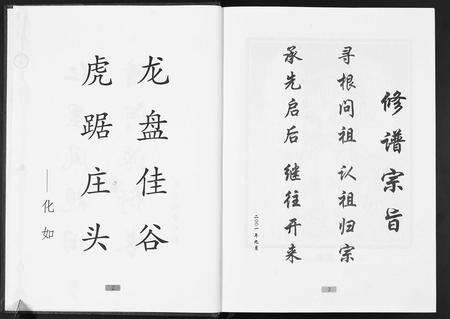 龙盘佳谷
虎踞庄头
——化如
2
修谱宗旨
寻根问祖 认祖归宗
承先启后 继往开来
二〇〇一年九月
3